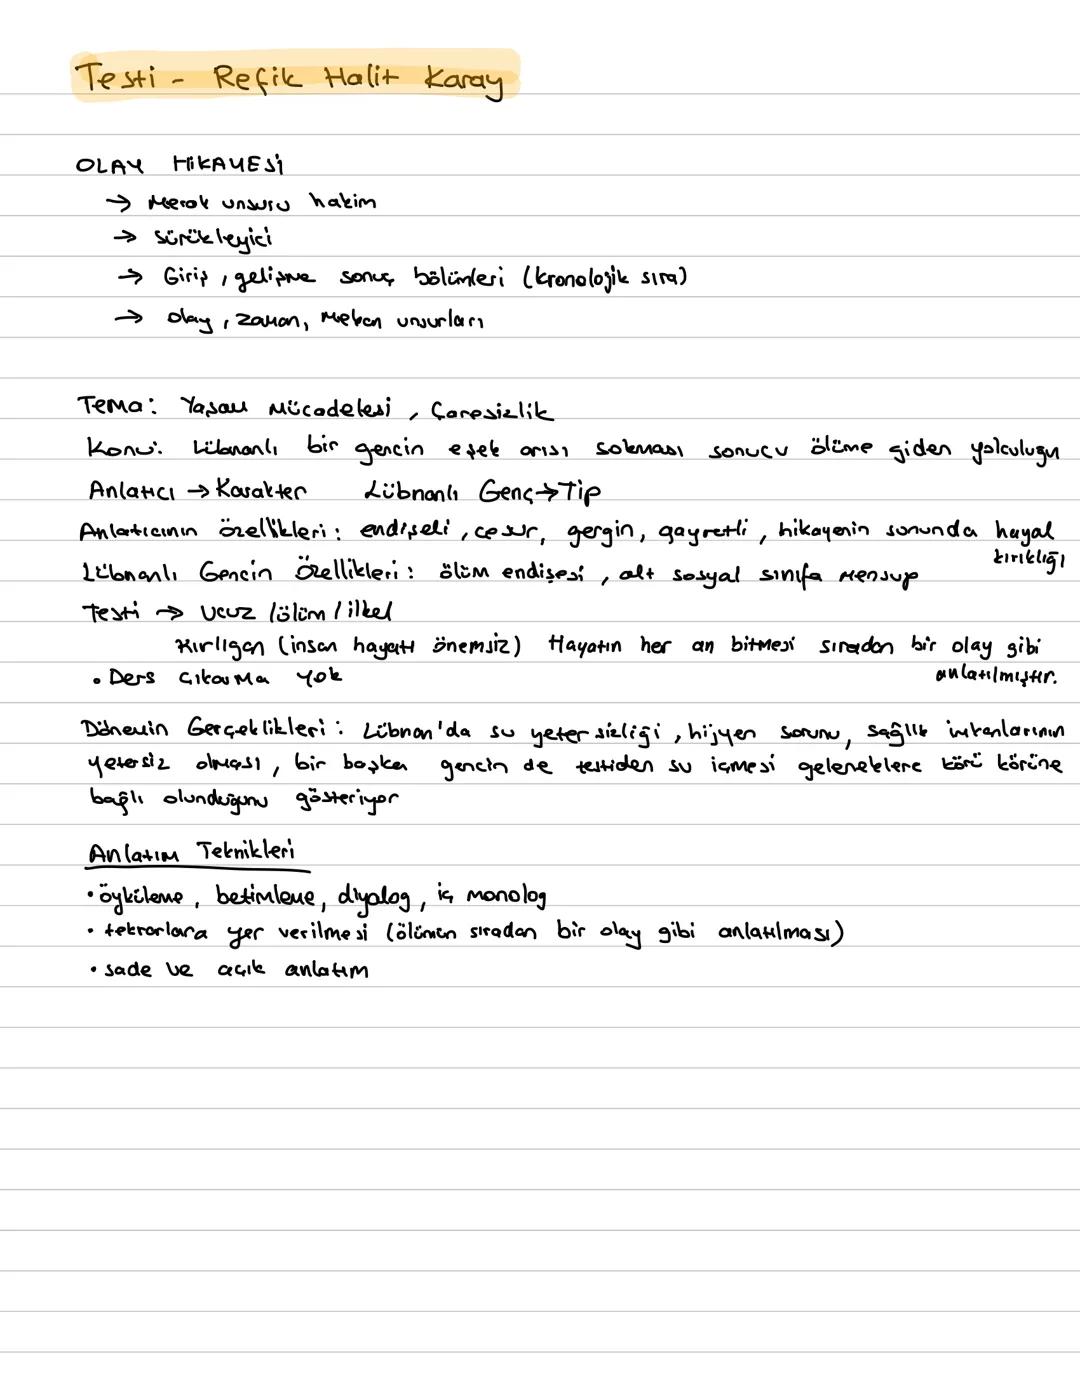 Testi - Refik Halit Karay
OLAY HİKAYESİ
→ Merak unsuru hakim
→ Sürükleyici
→ Giriş, gelişme sonuç bölümleri (kronolojik sıra)
→ olay, zaman, mekan unsurları
Tema: Yaşam Mücadelesi, Çaresizlik
Konu: Lübnanlı bir gencin eşek arısı sokması sonucu ölüme giden yolculuğu
Anlatıcı → Karakter Lübnanlı Genç → Tip
Anlatıcının özellikleri: endişeli, cesur, gergin, gayretli, hikayenin sonunda hayal
kırıklığı
Lübnanlı Gencin Özellikleri: ölüm endişesi, alt sosyal sınıfa mensup
Testi → Ucuz / ölüm / ilkel
Kırılgan (insan hayatı önemsiz) Hayatın her an bitmesi sıradan bir olay gibi
anlatılmıştır.
• Ders çıkarma yok
Dönemin Gerçeklikleri: Lübnan'da su yetersizliği, hijyen sorunu, sağlık imkanlarının
yetersiz olması, bir başka gencin de testiden su içmesi geleneklere körü körüne
bağlı olunduğunu gösteriyor
Anlatım Teknikleri
• öyküleme, betimleme, diyalog, iç monolog
• tekrarlara yer verilmesi (ölümün sıradan bir olay gibi anlatılması)
• sade ve açık anlatım